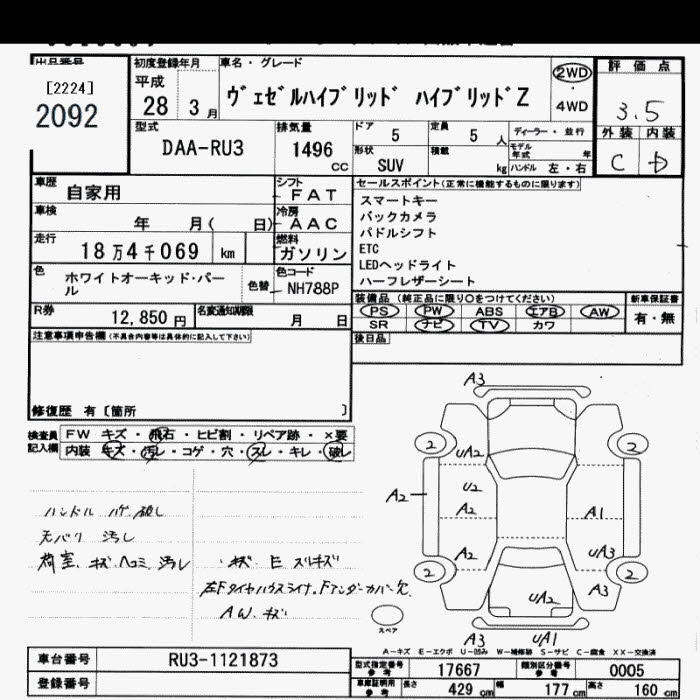 出品番号
[2224]
2092
初度登録年月
平成
28 3 月
車名・グレード
ヴェゼルハイブリッド ハイブリッドZ
2WD
4WD
評価点
3.5
外装 内装
C D
型式
DAA-RU3
排気量
1496 CC
ドア 5
定員 5 人
形状 SUV
積載 kg
ディーラー・並行
モデル年式 年
ハンドル 左・右
車歴 自家用
シフト FAT
車検 年 月( 日)
冷房 AAC
走行 18万4千069 km
燃料 ガソリン
色 ホワイトオーキッド・パール
色替
色コード NH788P
R券 12,850 円
名変通知期限 月 日
セールスポイント(正常に機能するものに限ります)
スマートキー
バックカメラ
パドルシフト
ETC
LEDヘッドライト
ハーフレザーシート
装備品 (純正品に限り○をつけてください)
新車保証書
PS PW ABS エアB AW
有・無
SR ナビ TV カワ
後日品
注意事項申告欄(不具合内容等は具体的に記入して下さい)
修復歴 有 [箇所 ]
検査員記入欄
FW キズ・飛石・ヒビ割・リペア跡・×要
内装 キズ・汚レ・コゲ・穴・スレ・キレ・破レ
ハンドル ハゲ 破レ
天バリ 汚レ
荷室 キズ ヘコミ 汚レ
・キズ E スリキズ
左Fタイヤハウスライナ、Fアンダーカバー欠
AW キズ
A3
2 2
UA2
U2
A2 A2 A1
A2 UA3
2 2
A3
UA2
スペア
A3 UA1
A-キズ E-エクボ U-凹み W-補修跡 S-サビ C-腐食 XX-交換済
車台番号 RU3-1121873
登録番号
型式指定番号 参考 17667
類別区分番号 参考 0005
車庫証明用 参考 長さ 429 cm 幅 177 cm 高さ 160 cm